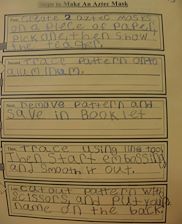 Steps to Make An Aztec Mask
First, Create 2 aztec masks
on a piece of paper,
pick one, then show
the teacher.
Second, trace pattern onto
aluminum.
Next, Remove pattern and
save in Booklet
Then, Trace using line tool,
then start embossing
and smooth it out.
cut out pattern with
scissors, and put your
name on the back.